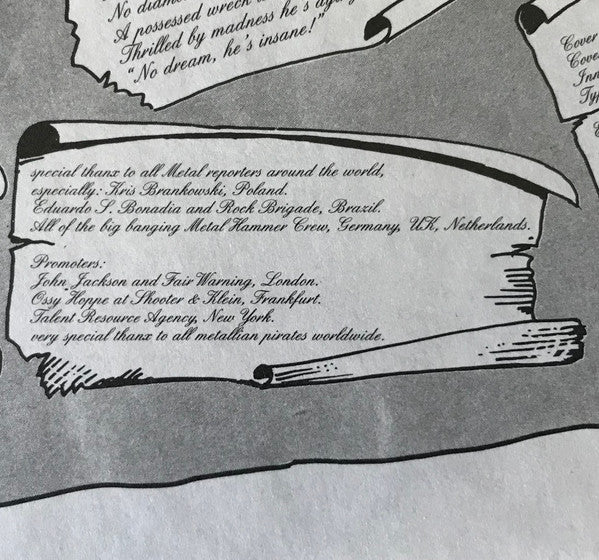 No diamo
A possessed wreck
Thrilled by madness he's
"No dream, he's insane!"
Cover
Cove
Inn
Typ
special thanx to all Metal reporters around the world,
especially: Kris Brankowski, Poland.
Eduardo S. Bonadia and Rock Brigade, Brazil.
All of the big banging Metal Hammer Crew, Germany, UK, Netherlands.
Promoters:
John Jackson and Fair Warning, London.
Ossy Hoppe at Shooter & Klein, Frankfurt.
Talent Resource Agency, New York.
very special thanx to all metallian pirates worldwide.